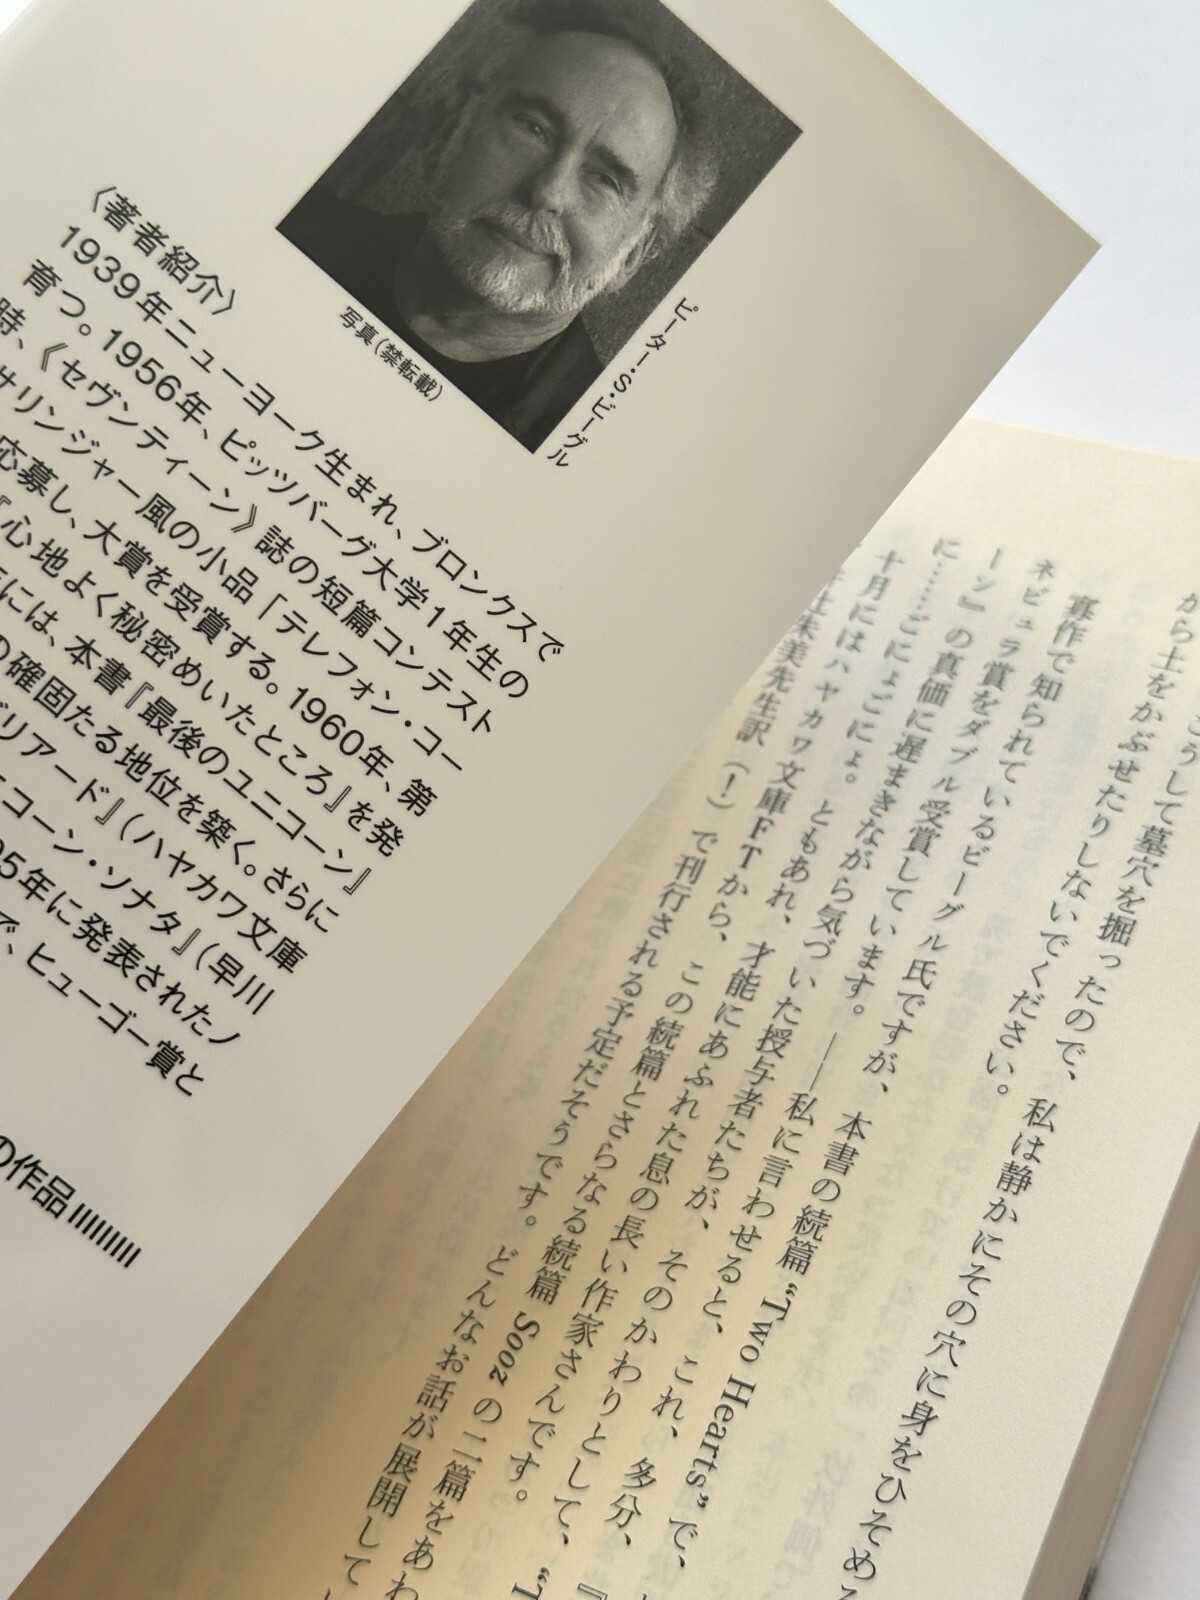 ピーター・S・ビーグル
写真（禁転載）
〈著者紹介〉
1939年ニューヨーク生まれ、ブロンクスで
育つ。1956年、ピッツバーグ大学1年生の
時、《セヴンティーン》誌の短篇コンテスト
サリンジャー風の小品「テレフォン・コー
応募し、大賞を受賞する。1960年、第
『心地よく秘密めいたところ』を発
には、本書『最後のユニコーン』
の確固たる地位を築く。さらに
ブリアード』（ハヤカワ文庫
ニコーン・ソナタ』（早川
5年に発表されたノ
で、ヒューゴー賞と
の作品
こうして墓穴を掘ったので、私は静かにその穴に身をひそめ
から土をかぶせたりしないでください。
寡作で知られているビーグル氏ですが、本書の続篇“Two Hearts”で、
ネビュラ賞をダブル受賞しています。――私に言わせると、これ、多分、
ーン』の真価に遅まきながら気づいた授与者たちが、そのかわりとして、
に……ごにょごにょ。ともあれ、才能にあふれた息の長い作家さんです。
十月にはハヤカワ文庫FTから、この続篇とさらなる続篇Soozの二篇をあわ
朱美先生訳（！）で刊行される予定だそうです。どんなお話が展開して